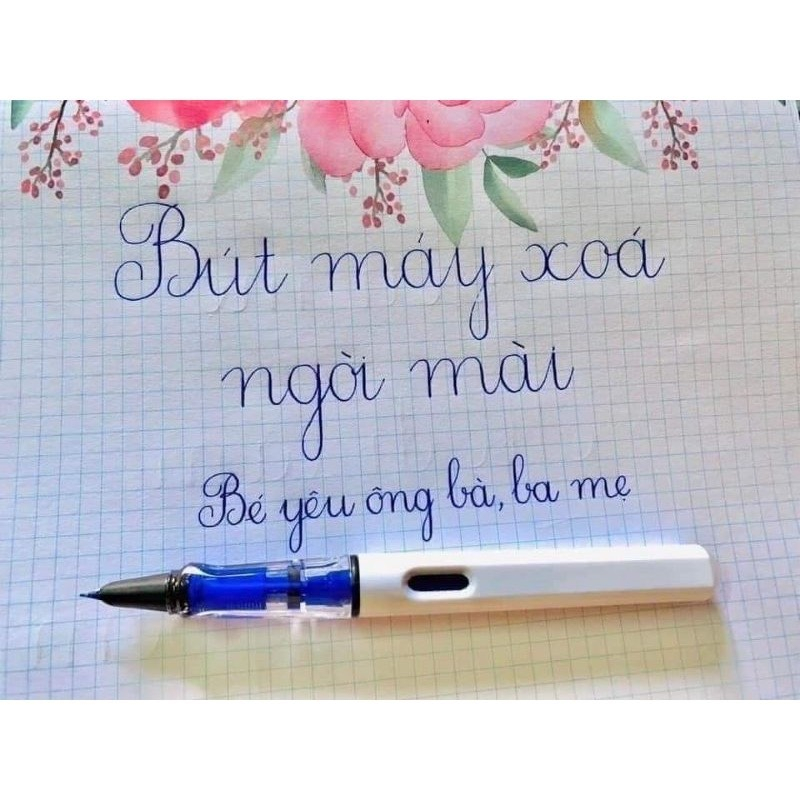 Bút máy xoá
ngòi mài
Bé yêu ông bà, ba mẹ